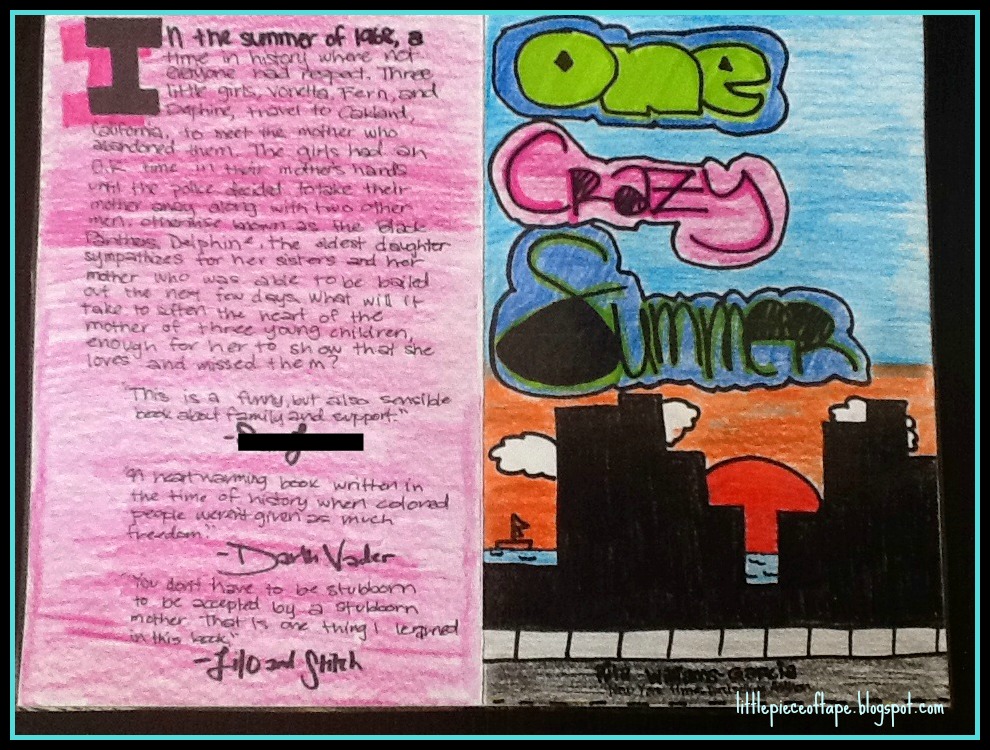 In the summer of 1968, a
time in history where not
everyone had respect. Three
little girls, Vonetta, Fern, and
Delphine, travel to Oakland,
California, to meet the mother who
abandoned them. The girls had an
O.K time in their mothers hands
until the police decided to take their
mother away along with two other
men otherwise known as the black
Panthers. Delphine, the oldest daughter
sympathizes for her sisters and her
mother who was able to be bailed
out the next few days. What will it
take to soften the heart of the
mother of three young children,
enough for her to show that she
loves and missed them?
"This is a funny, but also sensible
book about family and support."
"A heartwarming book written in
the time of history when colored
people weren't given as much
freedom."
-Darth Vader
"You don't have to be stubborn
to be accepted by a stubborn
mother. That is one thing I learned
in this book."
-Lilo and Stitch
One
Crazy
Summer
Rita Williams-Garcia
New York Times
littlepieceoftape.blogspot.com